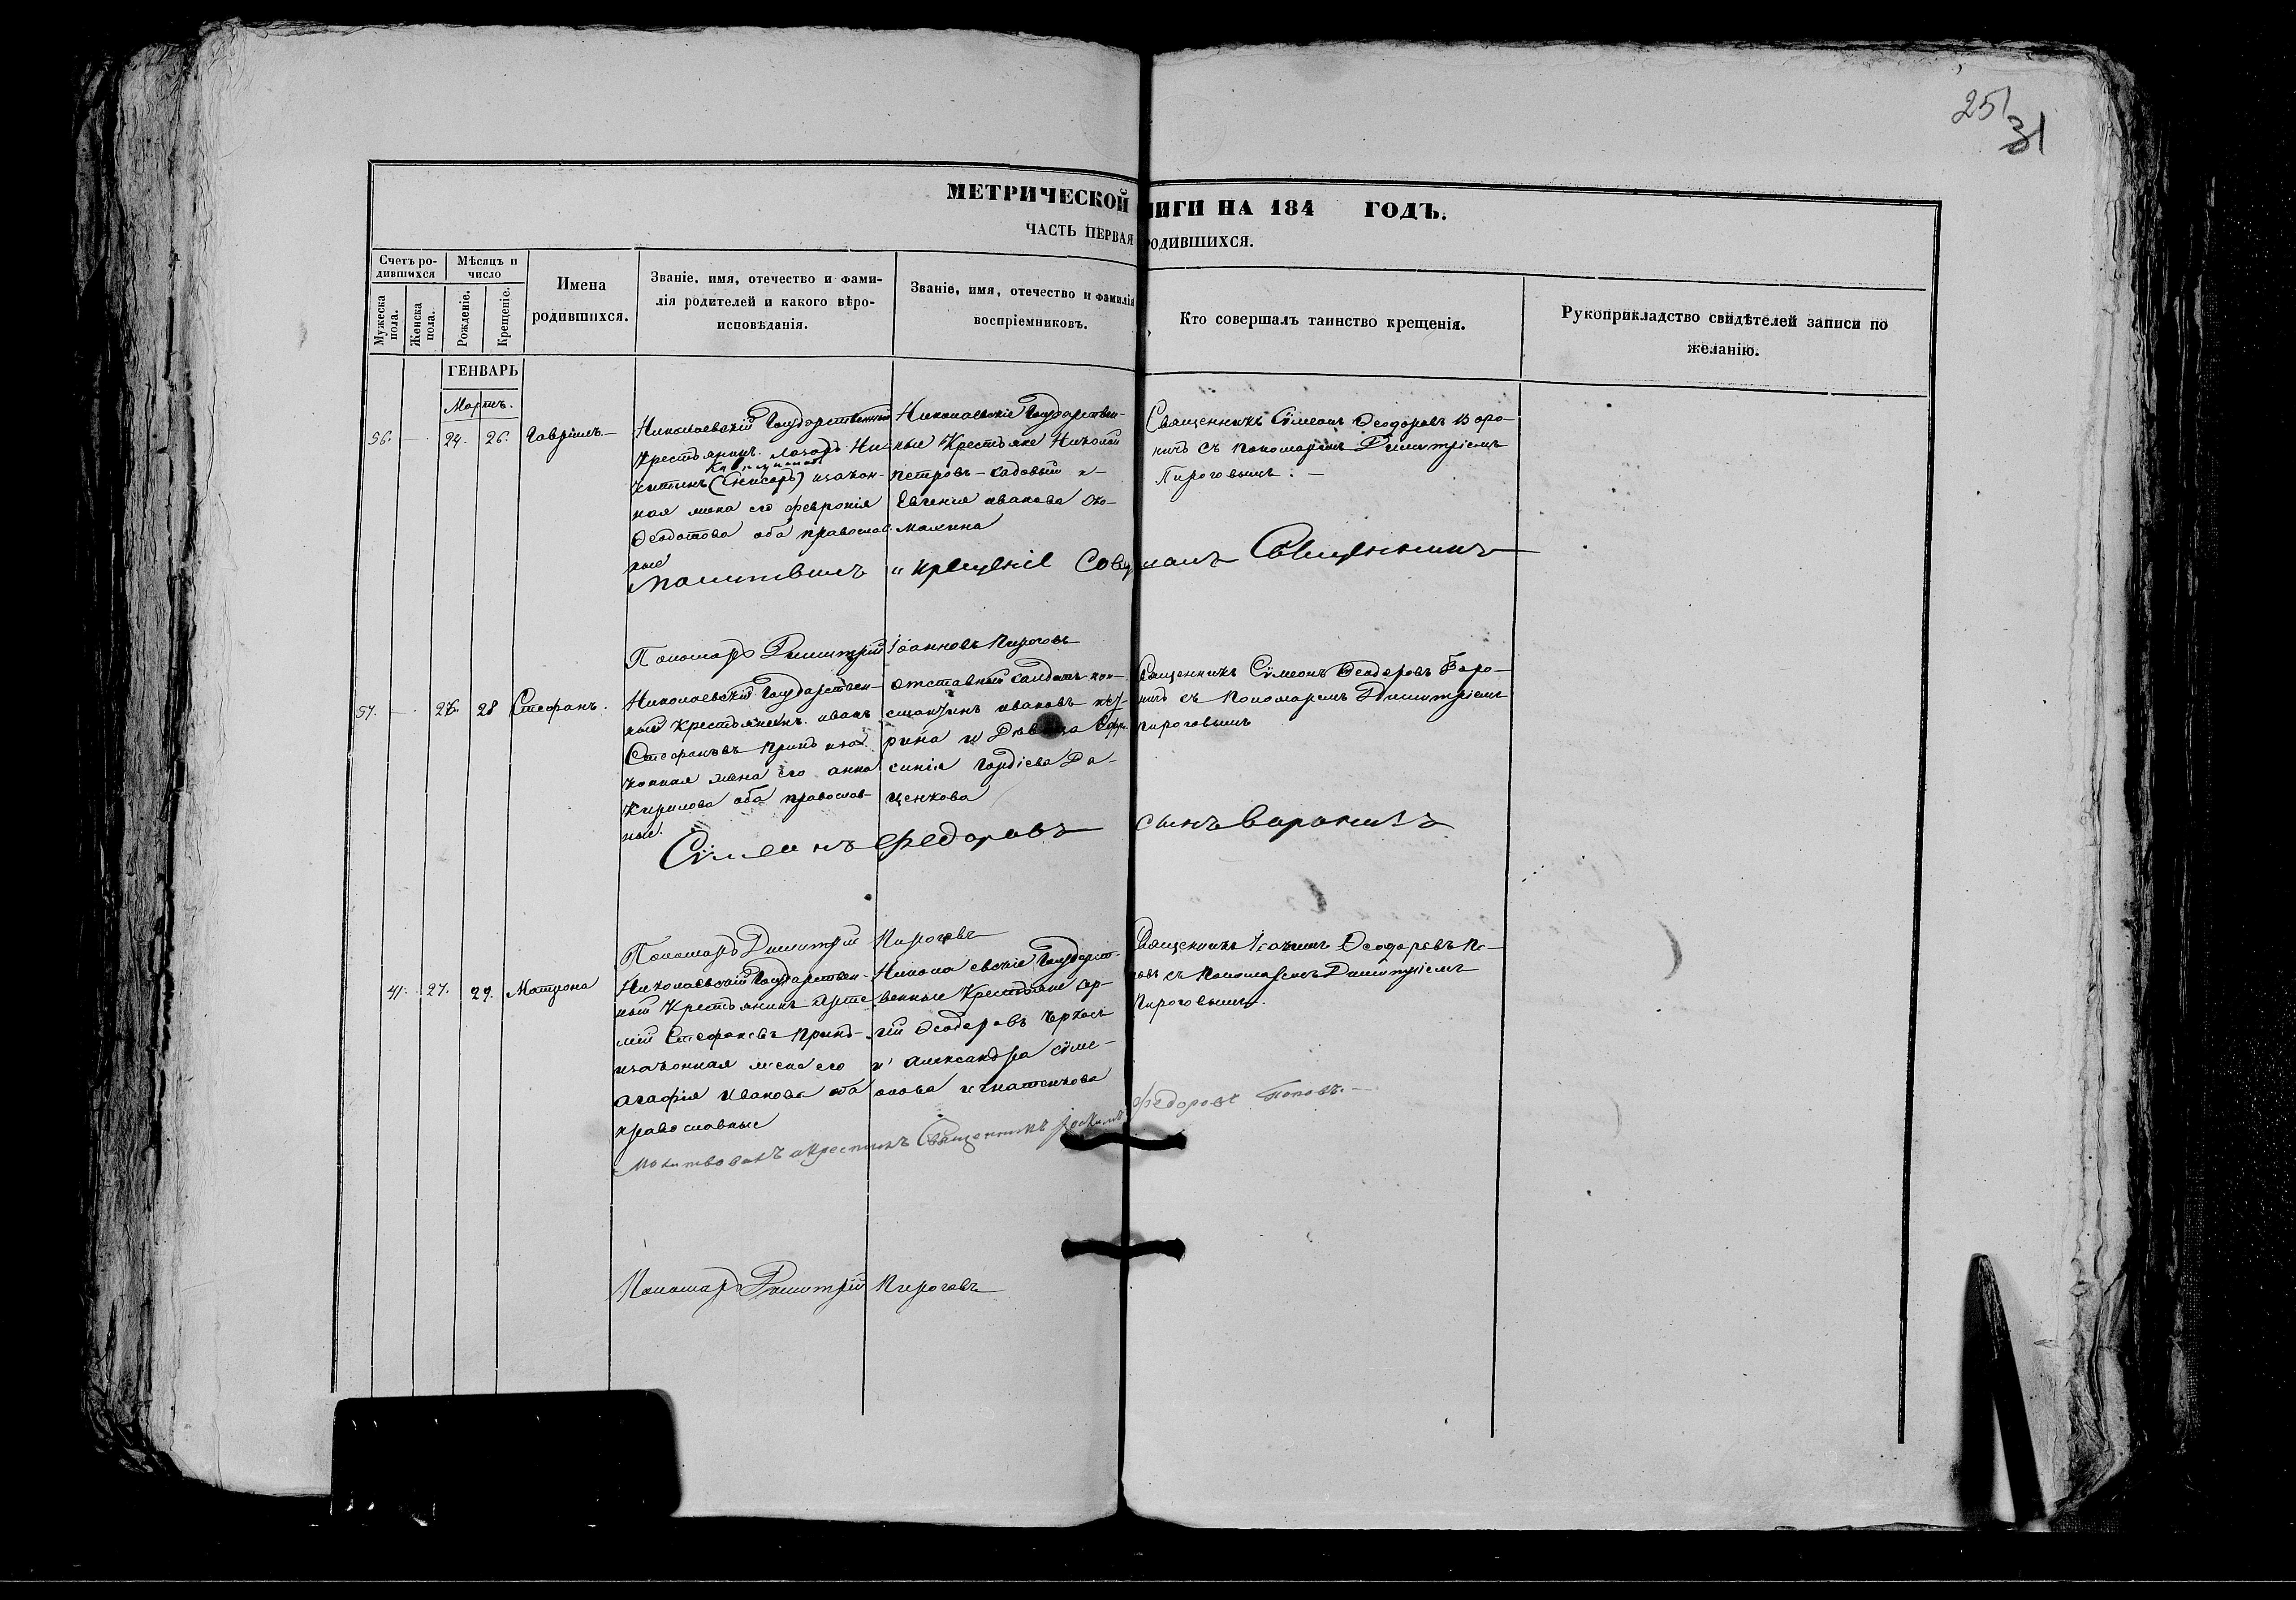 251
31
МЕТРИЧЕСКОЙ НИГИ НА 184 ГОДЪ.
ЧАСТЬ ПЕРВАЯ РОДИВШИХСЯ.
Счетъ ро-
дившихся
Мѣсяцъ и
число
Мужеска
пола.
Женска
пола.
Рожденіе.
Крещеніе.
Имена
родившихся.
Званіе, имя, отечество и фами-
лія родителей и какого вѣро-
исповѣданія.
Званіе, имя, отечество и фамилія
воспріемниковъ.
Кто совершалъ таинство крещенія.
Рукоприкладство свидѣтелей записи по
желанію.
ГЕНВАРЬ
Мартъ.
56. — 24. 26. Гавріилъ —
Николаевскій Государственный
Крестьянинъ Лазарь Ни-
китинъ изакон-
ная жена его февронія
Ѳеодотова оба православ-
ные
Николаевскіе Государствен-
ные Крестьяне Николай
петровъ садовый и
Евгенія иванова
Священникъ Сѵмеонъ Ѳеодоровъ Воро-
ничъ съ пономаремъ Димитріемъ
Пироговымъ. —
Молитвилъ и крещеніе Совершалъ Священникъ
Пономарь Димитрій Іоанновъ Пироговъ
57. — 27. 28 Стефанъ.
Николаевскій Государствен-
ный Крестьянинъ иванъ
Стефановъ Принь иза-
конная жена его анна
Кирилова оба православ-
ные.
отставный солдатъ кон-
стантинъ ивановъ
рина и Дѣвица Ефро-
синія Гордіева Да-
ценкова
Священникъ Сѵмеонъ Ѳеодоровъ Воро-
ничъ съ Пономаремъ Димитріемъ
пироговымъ
Сѵмеонъ Федоровъ сынъ Вороничъ
Пономарь Димитрій Пироговъ
41. 27. 29. Матрона
Николаевскій Государствен-
ный Крестьянинъ Арте
мій Стефановъ Принь
изаконная жена его
агафія Иванова оба
православные
Николаевскіе Государст-
венные Крестьяне
Ѳеодоровъ
и Александра Сѵме-
онова игнатенкова
Священникъ Іоакимъ Ѳеодоровъ По-
повъ съ Пономаремъ Димитріемъ
Пироговымъ.
Молитвовалъ и крестилъ Священникъ Іоакимъ Федоровъ Поповъ. —
Пономарь Димитрій Пироговъ